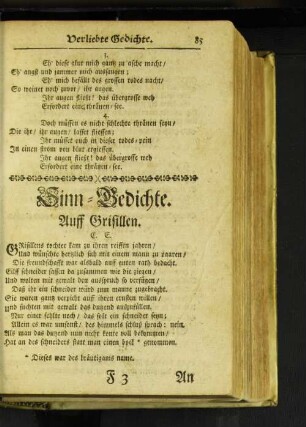 Verliebte Gedichte. 85
3.
Eh' diese glut mich gantz zu asche macht /
Eh' angst und jammer mich aussaugen;
Eh' mich befällt des grossen todes nacht /
So weinet noch zuvor / ihr augen.
Ihr augen fliest / das übergrosse weh
Erfordert eine thränen-see.
4.
Doch müssen es nicht schlechte thränen seyn /
Die ihr / ihr augen / lasset fliessen;
Ihr müsset euch in dieser todes-pein
In einen strom von blut ergiessen.
Ihr augen fliest! das übergrosse weh
Erfordert eine thränen-see.
Sinn-Gedichte.
Auff Grisillen.
C. E.
GRisillens tochter kam zu ihren reiffen jahren /
Und wünschte hertzlich sich mit einem mann zu paaren /
Die freundschafft war alsbald auff guten rath bedacht.
Eilff schneider sassen da zusammen wie die ziegen /
Und wolten mit gewalt den ausspruch so verfügen /
Daß ihr ein schneider würd zum manne zugebracht.
Sie waren gantz verpicht auff ihren ernsten willen /
Und dachten mit gewalt das dutzend auszufüllen.
Nur einer fehlte noch / das solt ein schneider seyn;
Allein es war umsonst / des himmels schluß sprach: nein.
Als man das dutzend nun nicht konte voll bekommen /
Hat an des schneiders statt man einen * genommen.
* Dieses war des bräutigams name.
F 3 An